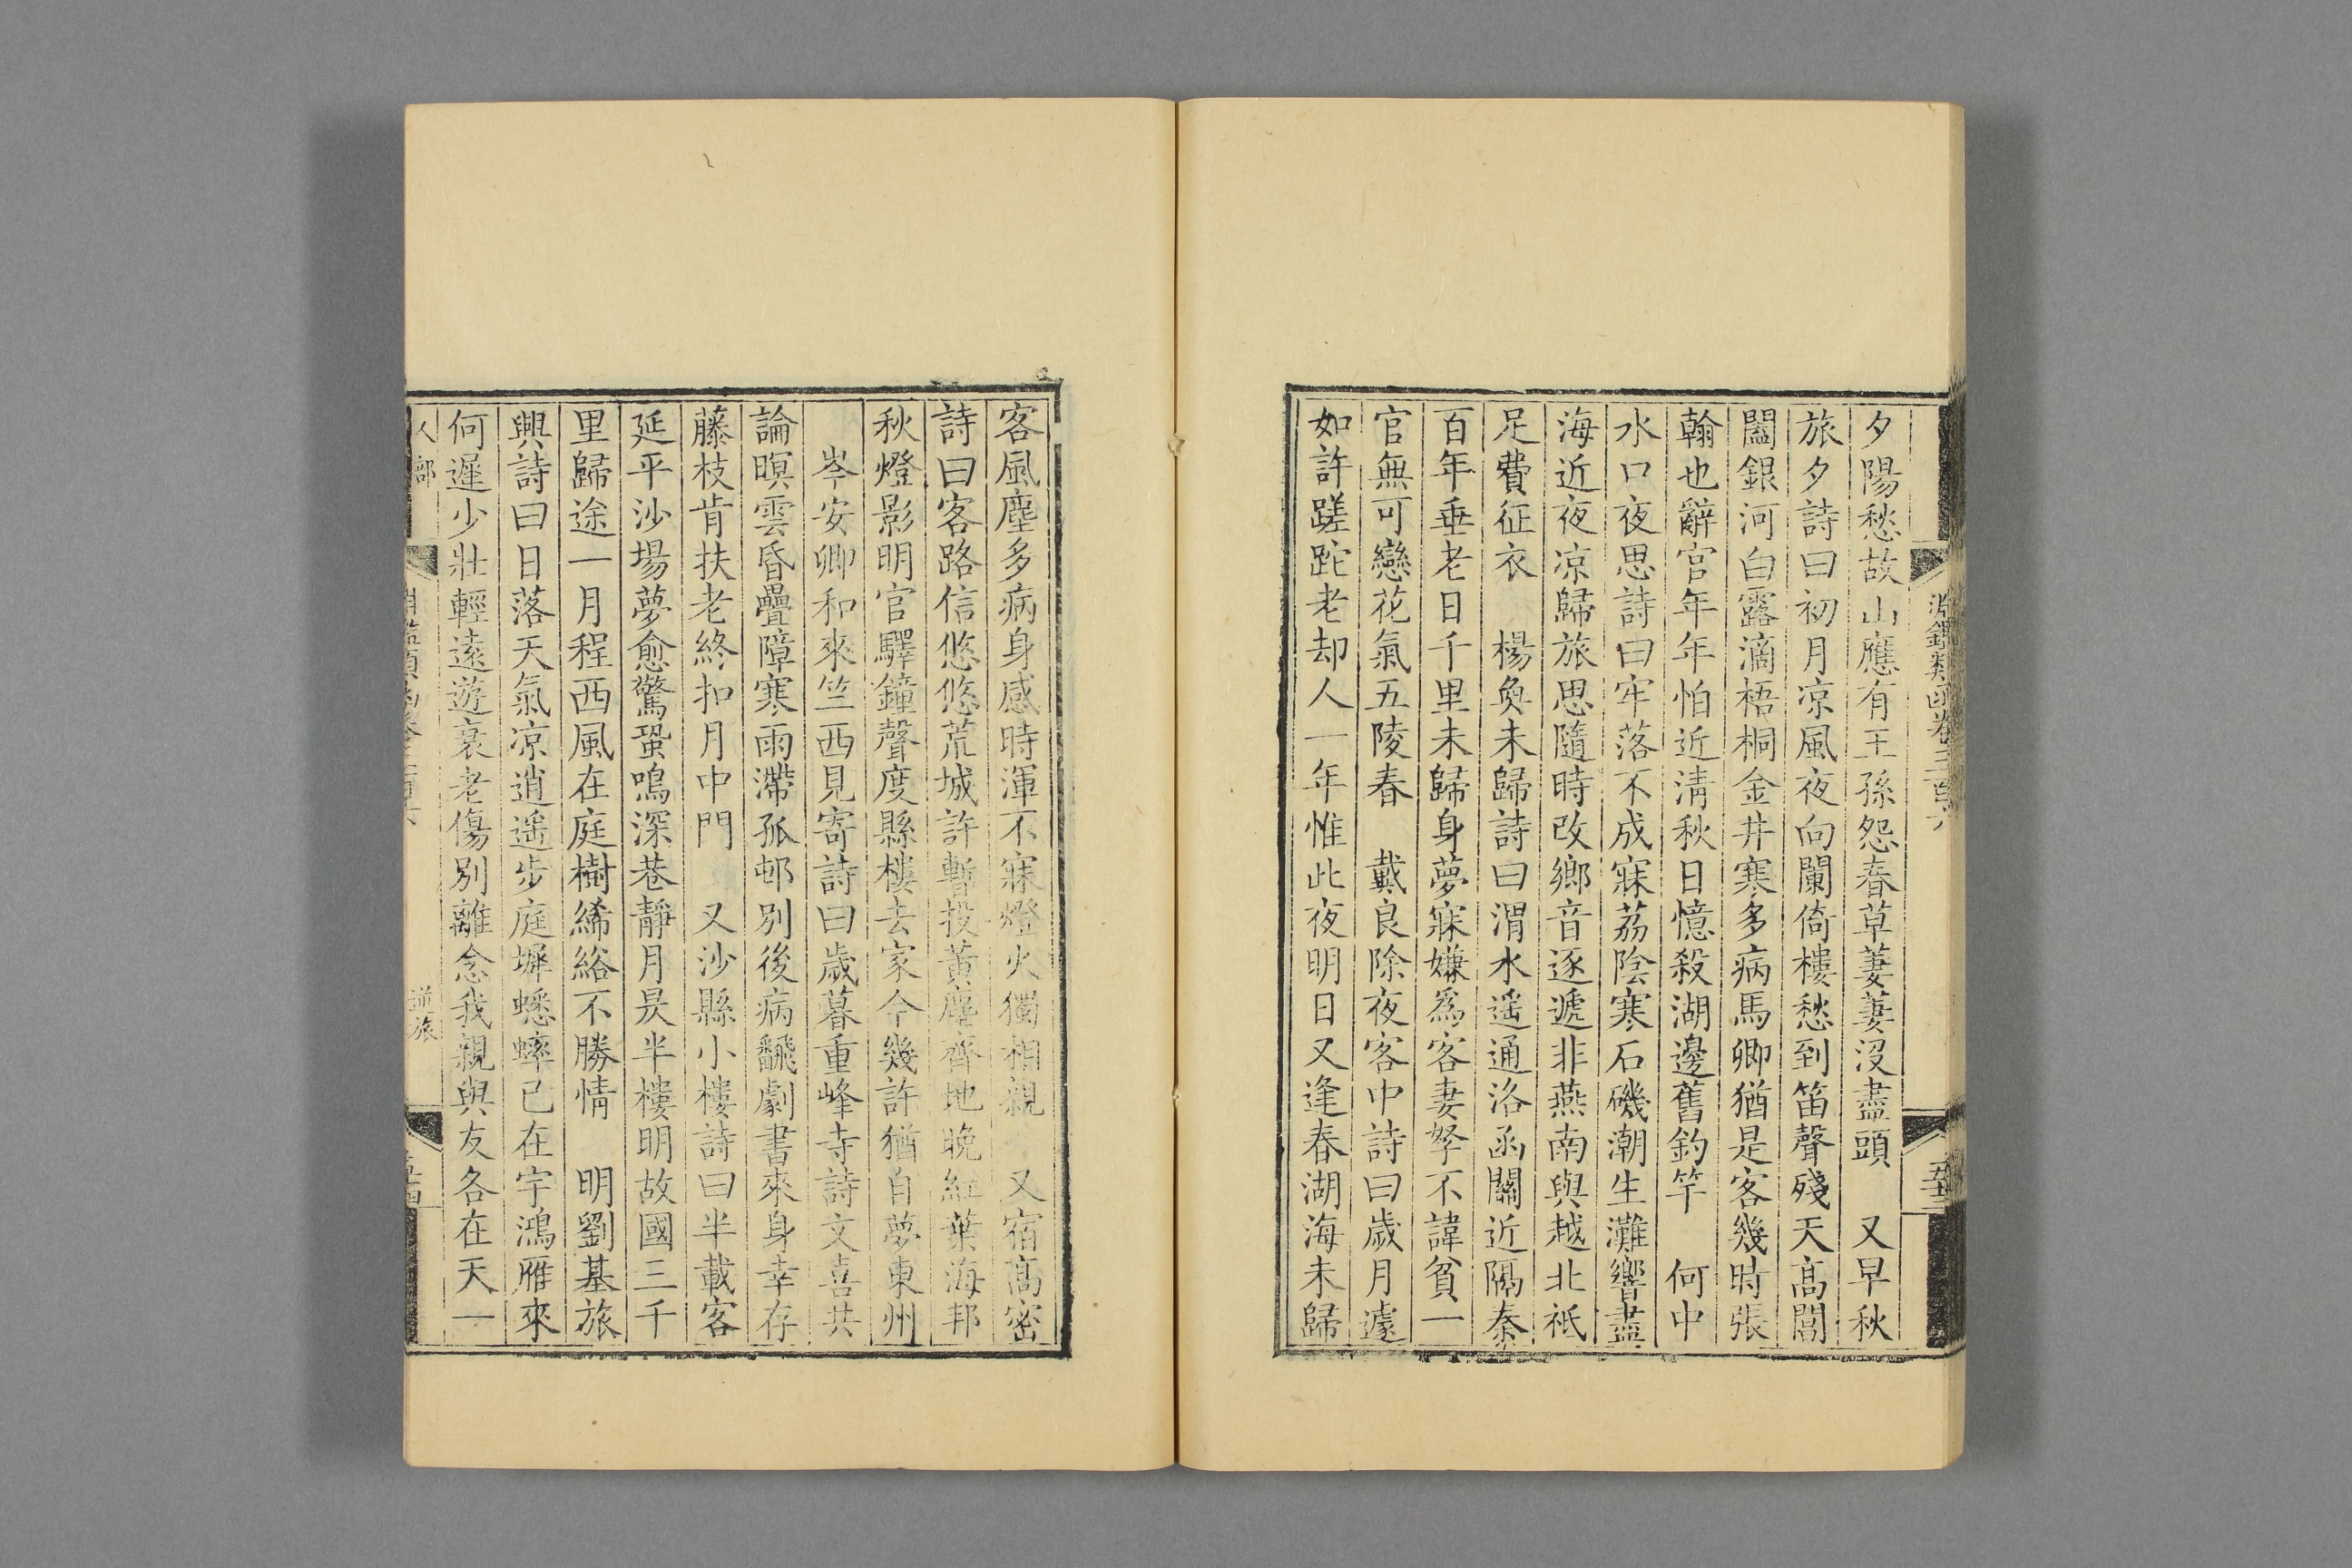 淵鑑類函卷三百六
夕陽愁故山應有王孫怨春草萋萋沒盡頭　又早秋
旅夕詩曰初月凉風夜向闌倚樓愁到笛聲殘天高閶
闔銀河白露滴梧桐金井寒多病馬卿猶是客幾時張
翰也辭官年年怕近清秋日憶殺湖邊舊釣竿　何中
水口夜思詩曰牢落不成寐荔陰寒石磯潮生灘響盡
海近夜凉歸旅思隨時改鄉音逐遞非燕南與越北祇
足費征衣　楊奐未歸詩曰渭水遥通洛函關近隔秦
百年垂老日千里未歸身夢寐嫌爲客妻孥不諱貧一
官無可戀花氣五陵春　戴良除夜客中詩曰歲月遽
如許蹉跎老却人一年惟此夜明日又逢春湖海未歸
客風塵多病身感時渾不寐燈火獨相親　又宿高密
詩曰客路信悠悠荒城許暫投黃塵齊地晚紅葉海邦
秋燈影明官驛鐘聲度縣樓去家今幾許猶自夢東州
岑安卿和來竺西見寄詩曰歲暮重峰寺詩文喜共
論暝雲昏疊障寒雨滯孤邨別後病飜劇書來身幸存
藤枝肯扶老終扣月中門　又沙縣小樓詩曰半載客
延平沙場夢愈驚蛩鳴深巷靜月昃半樓明故國三千
里歸途一月程西風在庭樹絺綌不勝情　明劉基旅
興詩曰日落天氣凉逍遥步庭墀蟋蟀已在宇鴻雁來
何遲少壯輕遠遊衰老傷別離念我親與友各在天一
人部
逆旅